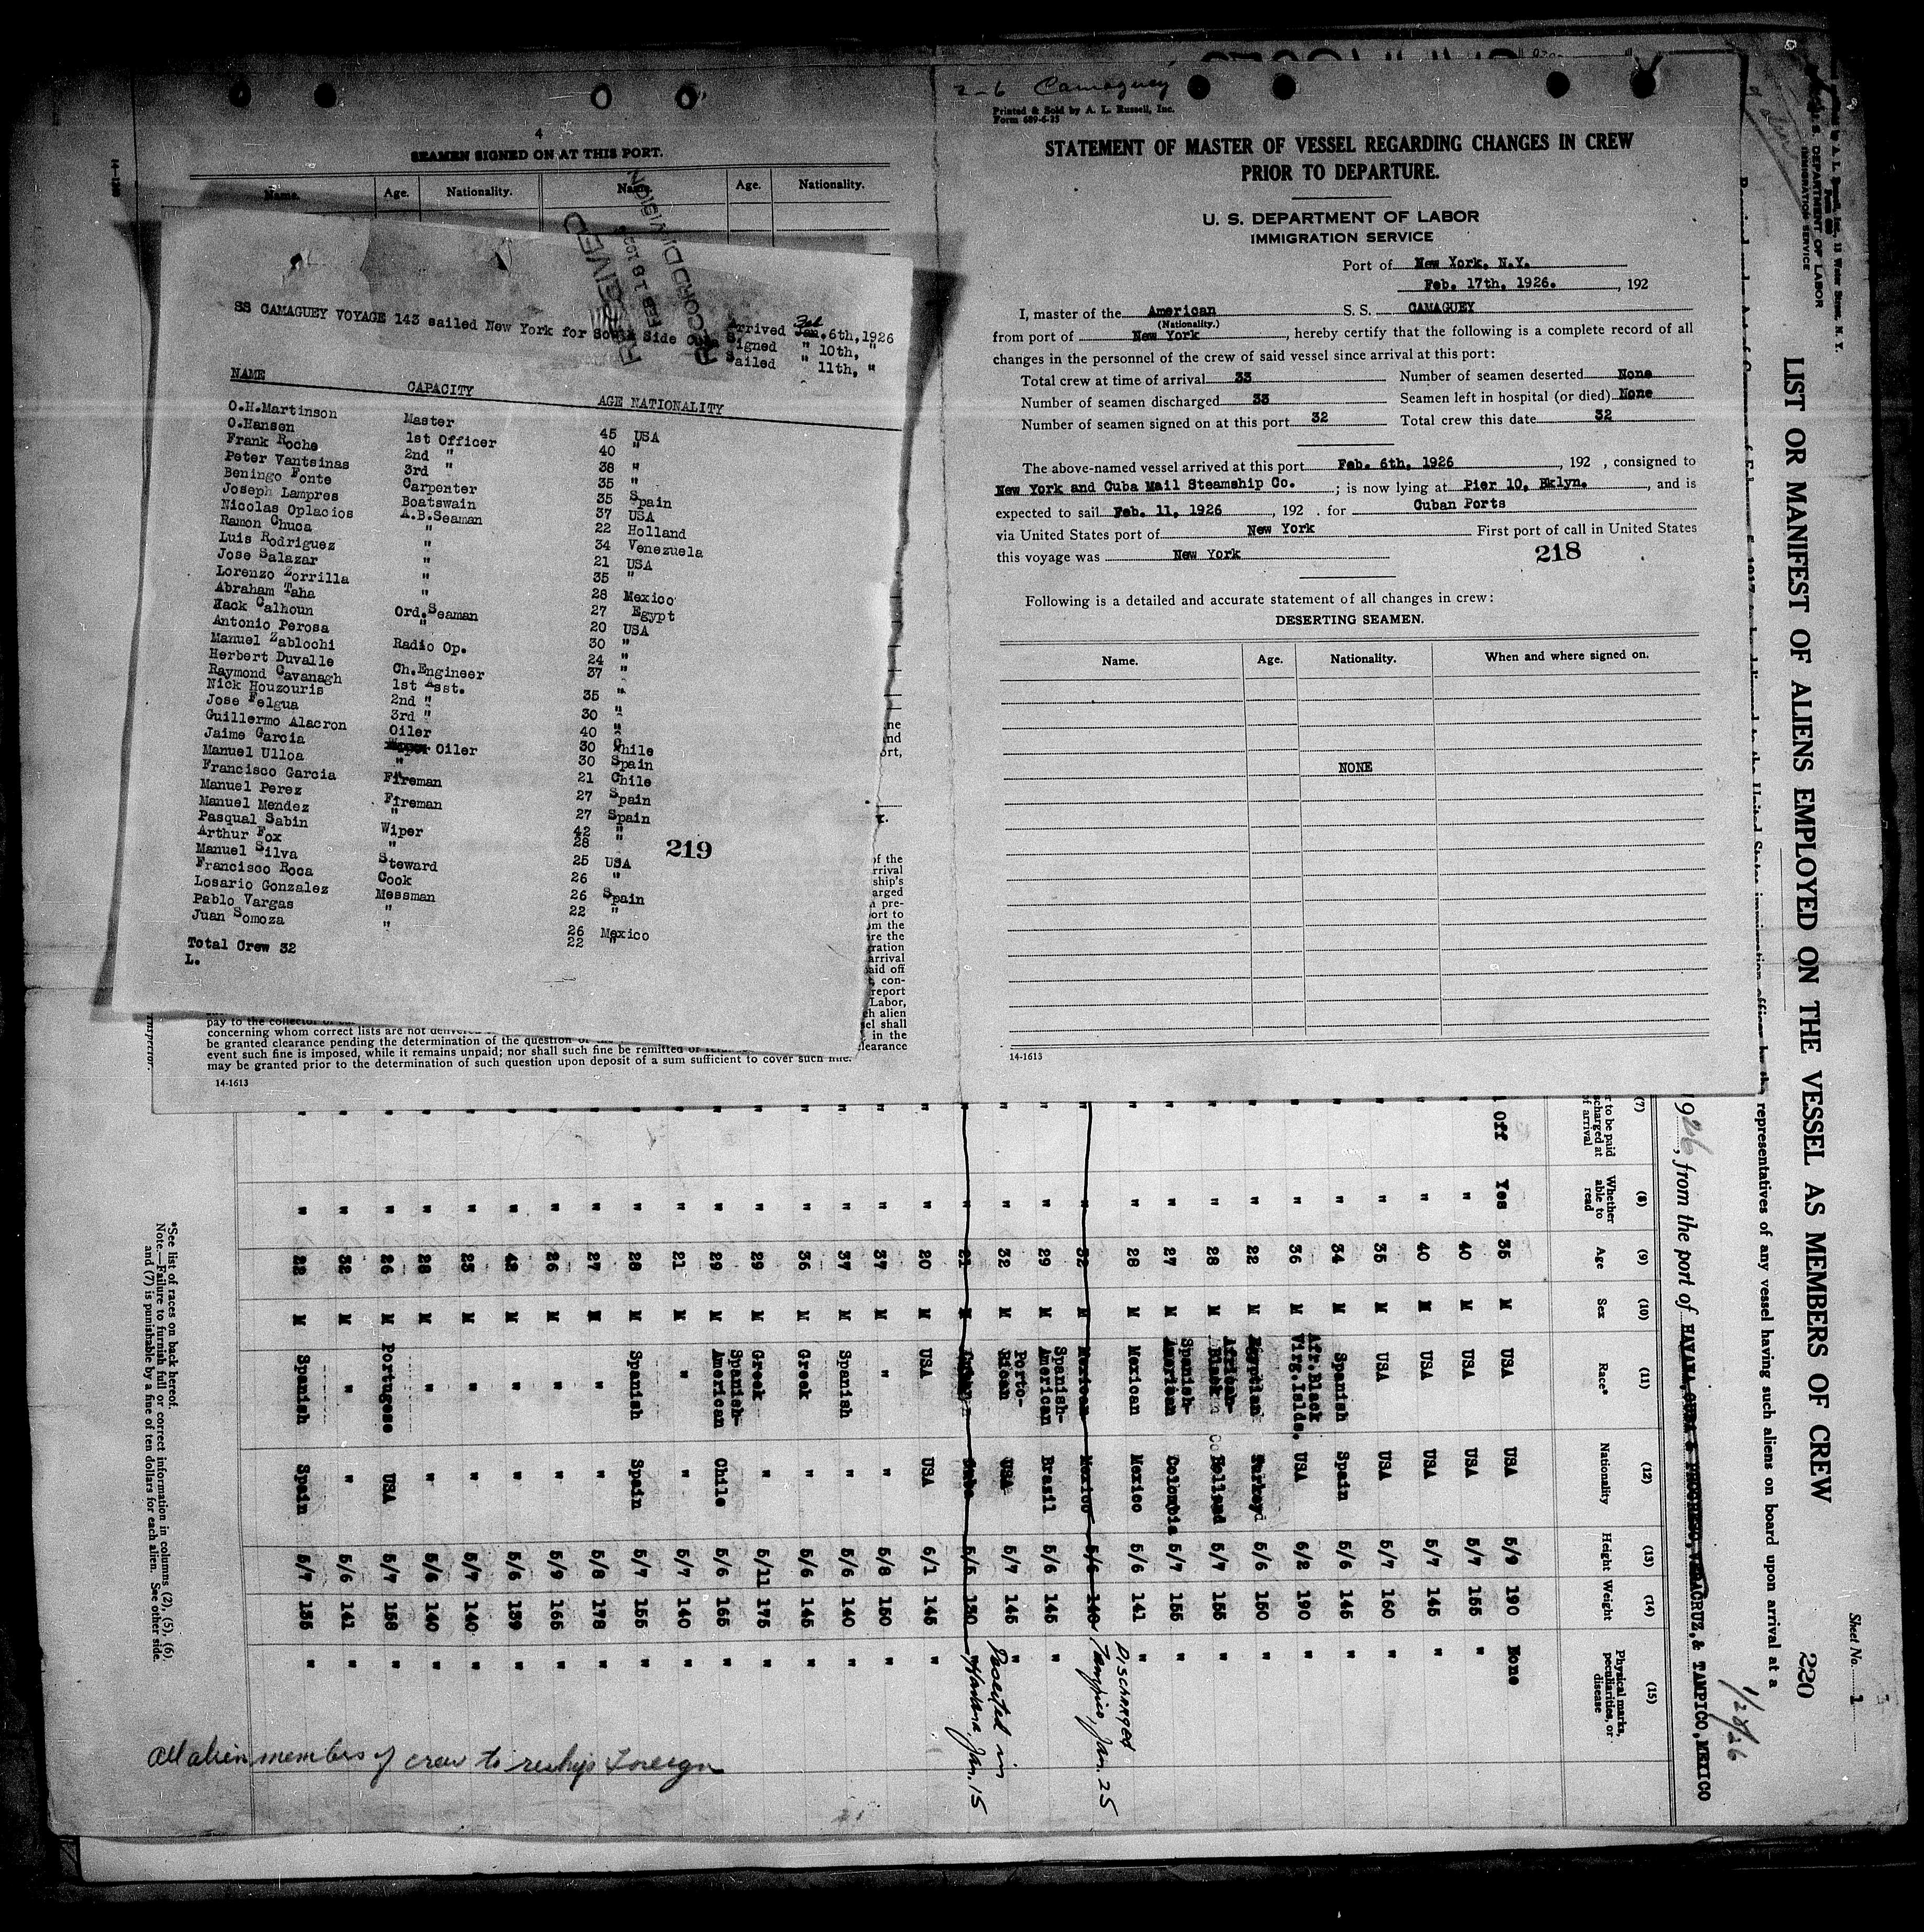 2-6 Camaguey
4
SEAMEN SIGNED ON AT THIS PORT.
Name. Age. Nationality. Name. Age. Nationality.
RECEIVED
FEB 18
RECORD DIVISION
SS CAMAGUEY VOYAGE 143 sailed New York for South Side Cuba
Arrived Jan. Feb 6th,1926
Signed " 10th, "
Sailed " 11th, "
NAME CAPACITY AGE NATIONALITY
O.H.Martinson Master 45 USA
O.Hansen 1st Officer 40 "
Frank Roche 2nd " 38 "
Peter Vantsinas 3rd " 35 "
Beningo Fonte Carpenter 35 Spain
Joseph Lampres Boatswain 37 USA
Nicolas Oplacios A.B.Seaman 22 Holland
Ramon Chuca " 34 Venezuela
Luis Rodriguez " 21 USA
Jose Salazar " 35 "
Lorenzo Zorrilla " 28 Mexico
Abraham Taha " 27 Egypt
Hack Calhoun Ord.Seaman 20 USA
Antonio Perosa " 30 "
Manuel Zablochi Radio Op. 24 "
Herbert Duvalle Ch.Engineer 37 "
Raymond Cavanagh 1st Asst. 35 "
Nick Houzouris 2nd " 30 "
Jose Felgua 3rd " 40 "
Guillermo Alacron Oiler 30 Chile
Jaime Garcia Oiler 30 Spain
Manuel Ulloa " 21 Chile
Francisco Garcia Fireman 27 Spain
Manuel Perez Fireman 27 Spain
Manuel Mendez " 42 "
Pasqual Sabin Wiper 28 "
Arthur Fox " 25 USA
Manuel Silva Steward 26 "
Francisco Roca Cook 26 Spain
Losario Gonzalez Messman 22 "
Pablo Vargas " 26 Mexico
Juan Somoza " 22 "
Total Crew 32
L.
219
concerning whom correct lists are not
be granted clearance pending the determination of the question
event such fine is imposed, while it remains unpaid; nor shall such fine be remitted or
may be granted prior to the determination of such question upon deposit of a sum sufficient to cover such fine.
14-1613
Printed & Sold by A. L. Russell, Inc.
Form 689-6-23
STATEMENT OF MASTER OF VESSEL REGARDING CHANGES IN CREW
PRIOR TO DEPARTURE.
U. S. DEPARTMENT OF LABOR
IMMIGRATION SERVICE
Port of New York, N.Y.
Feb. 17th, 1926. , 192
I, master of the American S. S. CAMAGUEY
(Nationality.)
from port of New York , hereby certify that the following is a complete record of all
changes in the personnel of the crew of said vessel since arrival at this port:
Total crew at time of arrival 33 Number of seamen deserted None
Number of seamen discharged 33 Seamen left in hospital (or died) None
Number of seamen signed on at this port 32 Total crew this date 32
The above-named vessel arrived at this port Feb. 6th, 1926 , 192 , consigned to
New York and Cuba Mail Steamship Co. ; is now lying at Pier 10, Bklyn. , and is
expected to sail Feb. 11, 1926 , 192 . for Cuban Ports
via United States port of New York First port of call in United States
this voyage was New York 218
Following is a detailed and accurate statement of all changes in crew:
DESERTING SEAMEN.
Name. Age. Nationality. When and where signed on.
NONE
14-1613
U. S. DEPARTMENT OF LABOR
IMMIGRATION SERVICE
Sheet No. 1
220
LIST OR MANIFEST OF ALIENS EMPLOYED ON THE VESSEL AS MEMBERS OF CREW
representatives of any vessel having such aliens on board upon arrival at a
1/28/26
1926, from the port of HAVANA, CUBA & PROGRESO, VERACRUZ, & TAMPICO, MEXICO
(7) (8) (9) (10) (11) (12) (13) (14) (15)
Whether able to read Age Sex Race* Nationality Height Weight Physical marks, peculiarities, or disease
Off Yes 35 M USA USA 5/9 190 None
" " 40 M USA USA 5/7 155 "
" " 40 M USA USA 5/7 145 "
" " 35 M USA USA 5/7 160 "
" " 34 M Spanish Spain 5/6 145 "
" " 36 M Afr.Black Virg.Islds. USA 6/2 190 "
" " 22 M Egyptian 5/6 150 "
" " 28 M African-Black Holland 5/7 155 "
" " 27 M Spanish-American Colombia 5/7 155 "
" " 28 M Mexican Mexico 5/6 141 "
" " 32 M Mexican Mexico 5/6 140 Discharged Tampico, Jan. 25
" " 29 M Spanish-American Brasil 5/6 145 "
" " 32 M Porto-Rican USA 5/7 145 "
" " 21 M Cuban Cuba 5/5 130 " Deserted in Havana, Jan. 15
" " 20 M USA USA 6/1 145 "
" " 37 M " " 5/8 150 "
" " 37 M Spanish " 5/6 140 "
" " 36 M Greek " 5/6 145 "
" " 29 M Greek " 5/11 175 "
" " 29 M Spanish-American Chile 5/6 165 "
" " 21 M " " 5/7 140 "
" " 28 M Spanish Spain 5/7 155 "
" " 27 M " " 5/8 178 "
" " 26 M " " 5/9 165 "
" " 42 M " " 5/6 139 "
" " 25 M " " 5/7 140 "
" " 28 M " " 5/6 140 "
" " 26 M Portugese USA 5/7 158 "
" " 32 M " " 5/6 141 "
" " 22 M Spanish Spain 5/7 135 "
*See list of races on back hereof.
Note.—Failure to furnish full or correct information in columns (2), (5), (6)
and (7) is punishable by a fine of ten dollars for each alien. See other side.
All alien members of crew to reship foreign